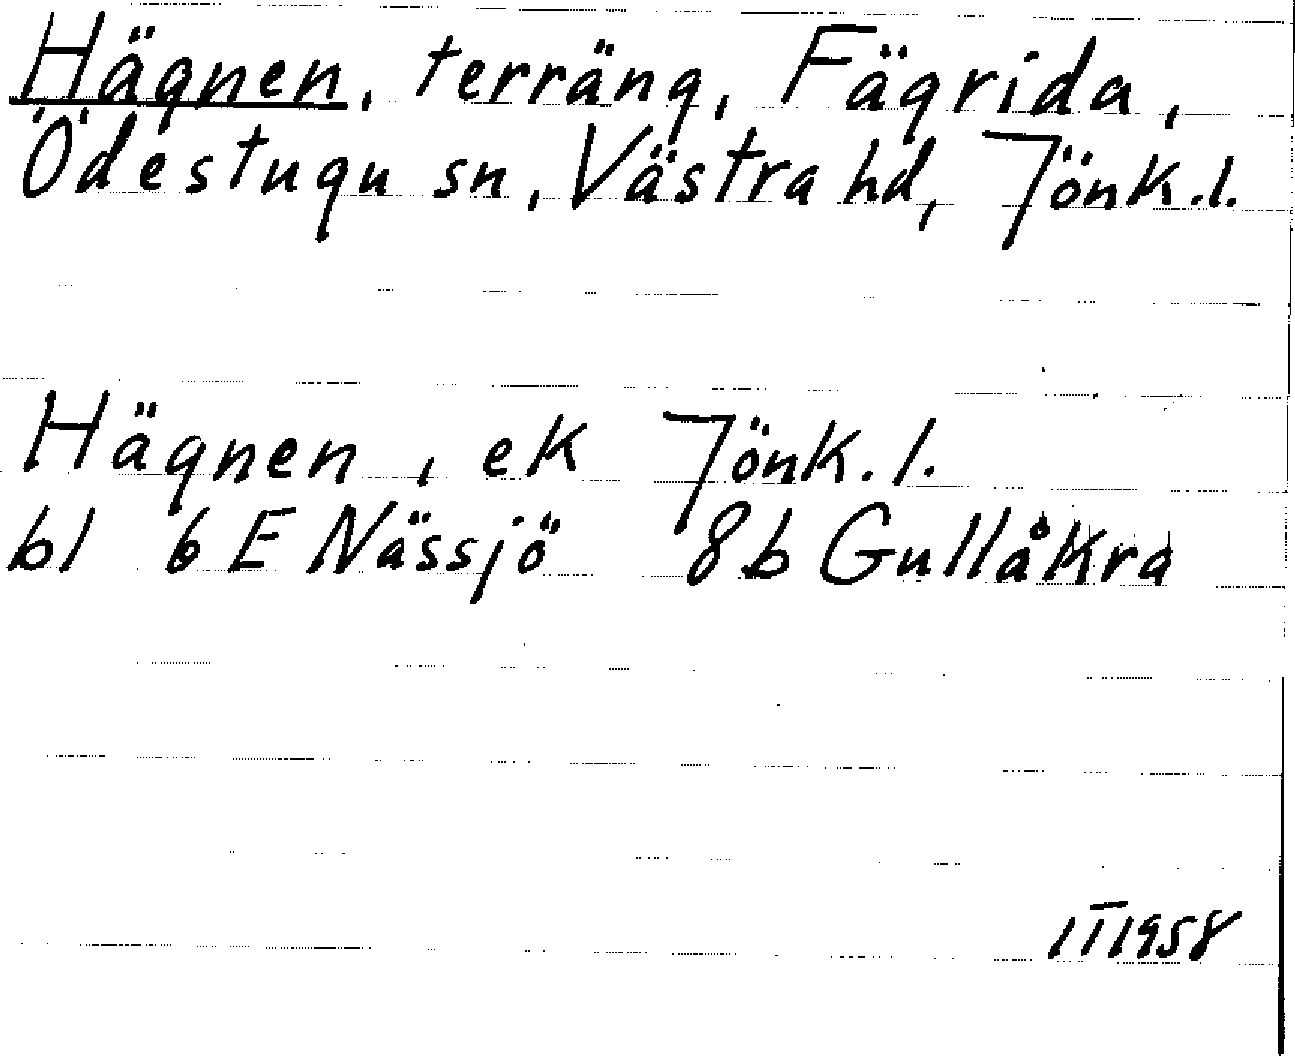 Hägnen, terräng, Fägrida,
Ödestugu sn, Västra hd, Jönk.l.
Hägnen, ek Jönk.l.
bl 6 E Nässjö 8b Gullåkra